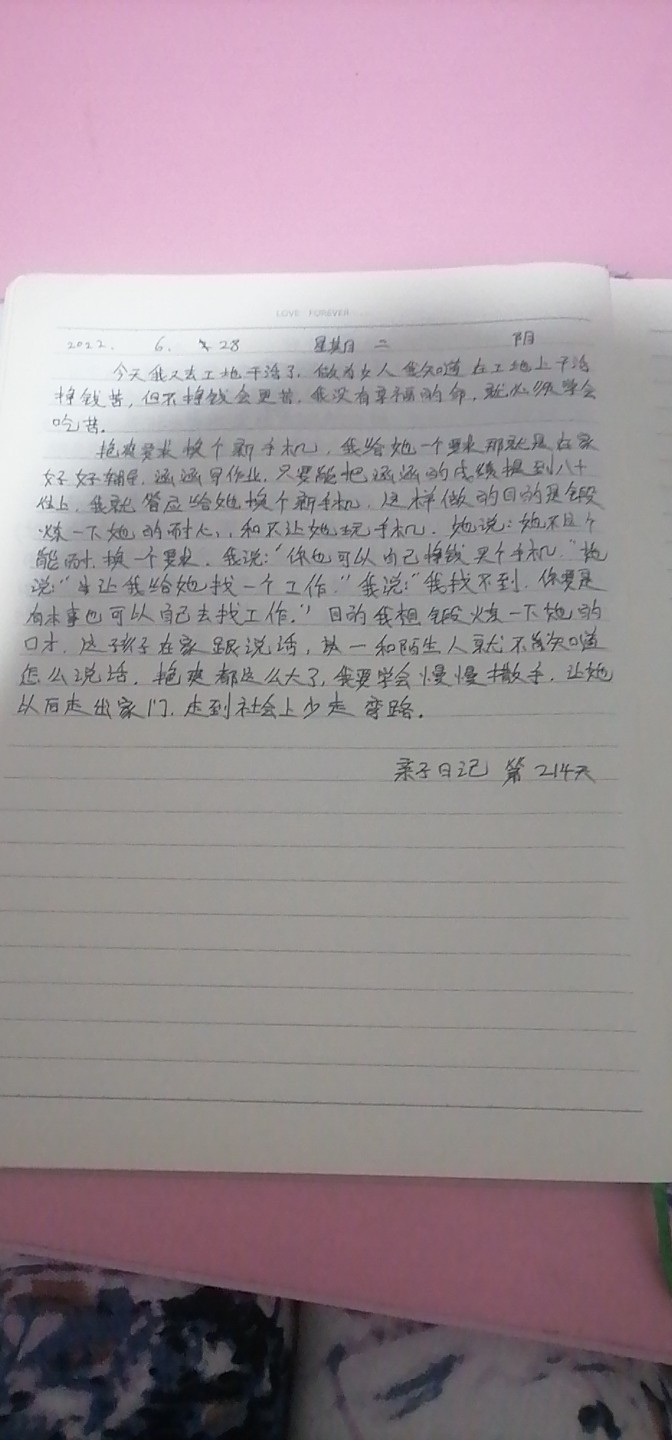 LOVE FOREVER
2022. 6. 28 星期二 阴
今天我又去工地干活了，做为女人我知道在工地上干活
挣钱苦，但不挣钱会更苦，我没有幸福的命，就必须学会
吃苦。
艳爽要求换个新手机，我给她一个要求那就是在家
好好辅导涵涵写作业，只要能把涵涵的成绩提到八十
以上，我就答应给她换个新手机，这样做的目的是锻
炼一下她的耐心，和不让她玩手机．她说：她不
能耐，换一个要求，我说：“你也可以自己挣钱买个手机．”她
说：“让我给她找一个工作．”我说：“我找不到，你要是
有本事也可以自己去找工作．”目的我想锻炼一下她的
口才，这孩子在家跟说话，一和陌生人就不知道
怎么说话．艳爽都这么大了，我要学会慢慢撒手，让她
以后走出家门，走到社会上少走弯路．
亲子日记 第214天